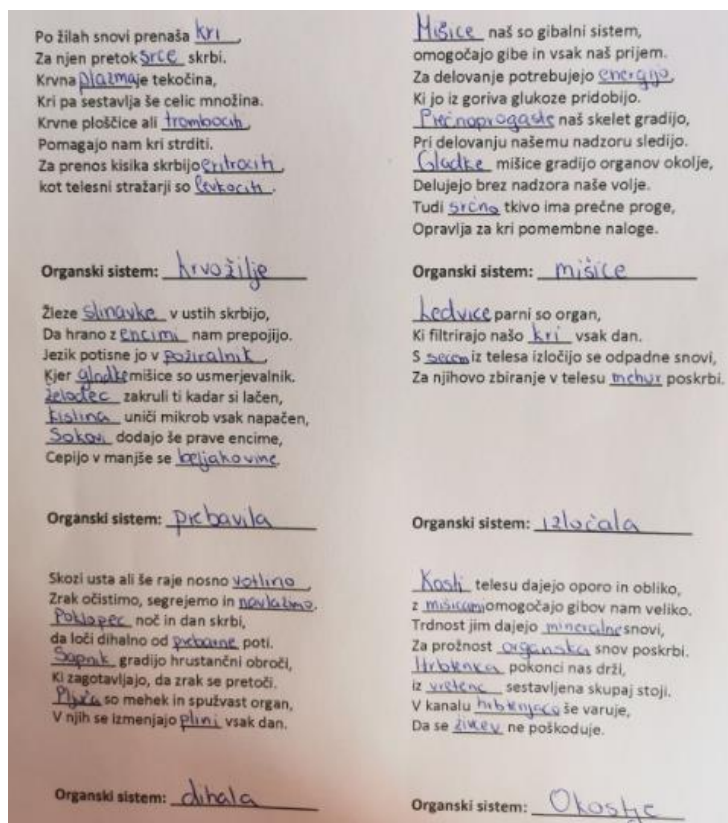 Po žilah snovi prenaša kri,
Za njen pretok srce skrbi.
Krvna plazma je tekočina,
Kri pa sestavlja še celic množina.
Krvne ploščice ali trombociti,
Pomagajo nam kri strditi.
Za prenos kisika skrbijo eritrociti,
kot telesni stražarji so levkociti.
Organski sistem: krvožilje
Žleze slinavke v ustih skrbijo,
Da hrano z encimi nam prepojijo.
Jezik potisne jo v požiralnik,
Kjer gladke mišice so usmerjevalnik.
želodec zakruli ti kadar si lačen,
kislina uniči mikrob vsak napačen,
Sokovi dodajo še prave encime,
Cepijo v manjše se beljakovine.
Organski sistem: prebavila
Skozi usta ali še raje nosno votlino,
Zrak očistimo, segrejemo in navlažimo.
Poklopec noč in dan skrbi,
da loči dihalno od prebavne poti.
Sapnik gradijo hrustančni obroči,
Ki zagotavljajo, da zrak se pretoči.
Pljuča so mehek in spužvast organ,
V njih se izmenjajo plini vsak dan.
Organski sistem: dihala
Mišice naš so gibalni sistem,
omogočajo gibe in vsak naš prijem.
Za delovanje potrebujejo energijo,
Ki jo iz goriva glukoze pridobijo.
Prečnoprogaste naš skelet gradijo,
Pri delovanju našemu nadzoru sledijo.
Gladke mišice gradijo organov okolje,
Delujejo brez nadzora naše volje.
Tudi srčno tkivo ima prečne proge,
Opravlja za kri pomembne naloge.
Organski sistem: mišice
Ledvice parni so organ,
Ki filtrirajo našo kri vsak dan.
S sečem iz telesa izločijo se odpadne snovi,
Za njihovo zbiranje v telesu mehur poskrbi.
Organski sistem: izločala
Kosti telesu dajejo oporo in obliko,
z mišicami omogočajo gibov nam veliko.
Trdnost jim dajejo mineralne snovi,
Za prožnost organska snov poskrbi.
Hrbtenica pokonci nas drži,
iz vretenc sestavljena skupaj stoji.
V kanalu hrbtenjača še varuje,
Da se živcev ne poškoduje.
Organski sistem: Okostje